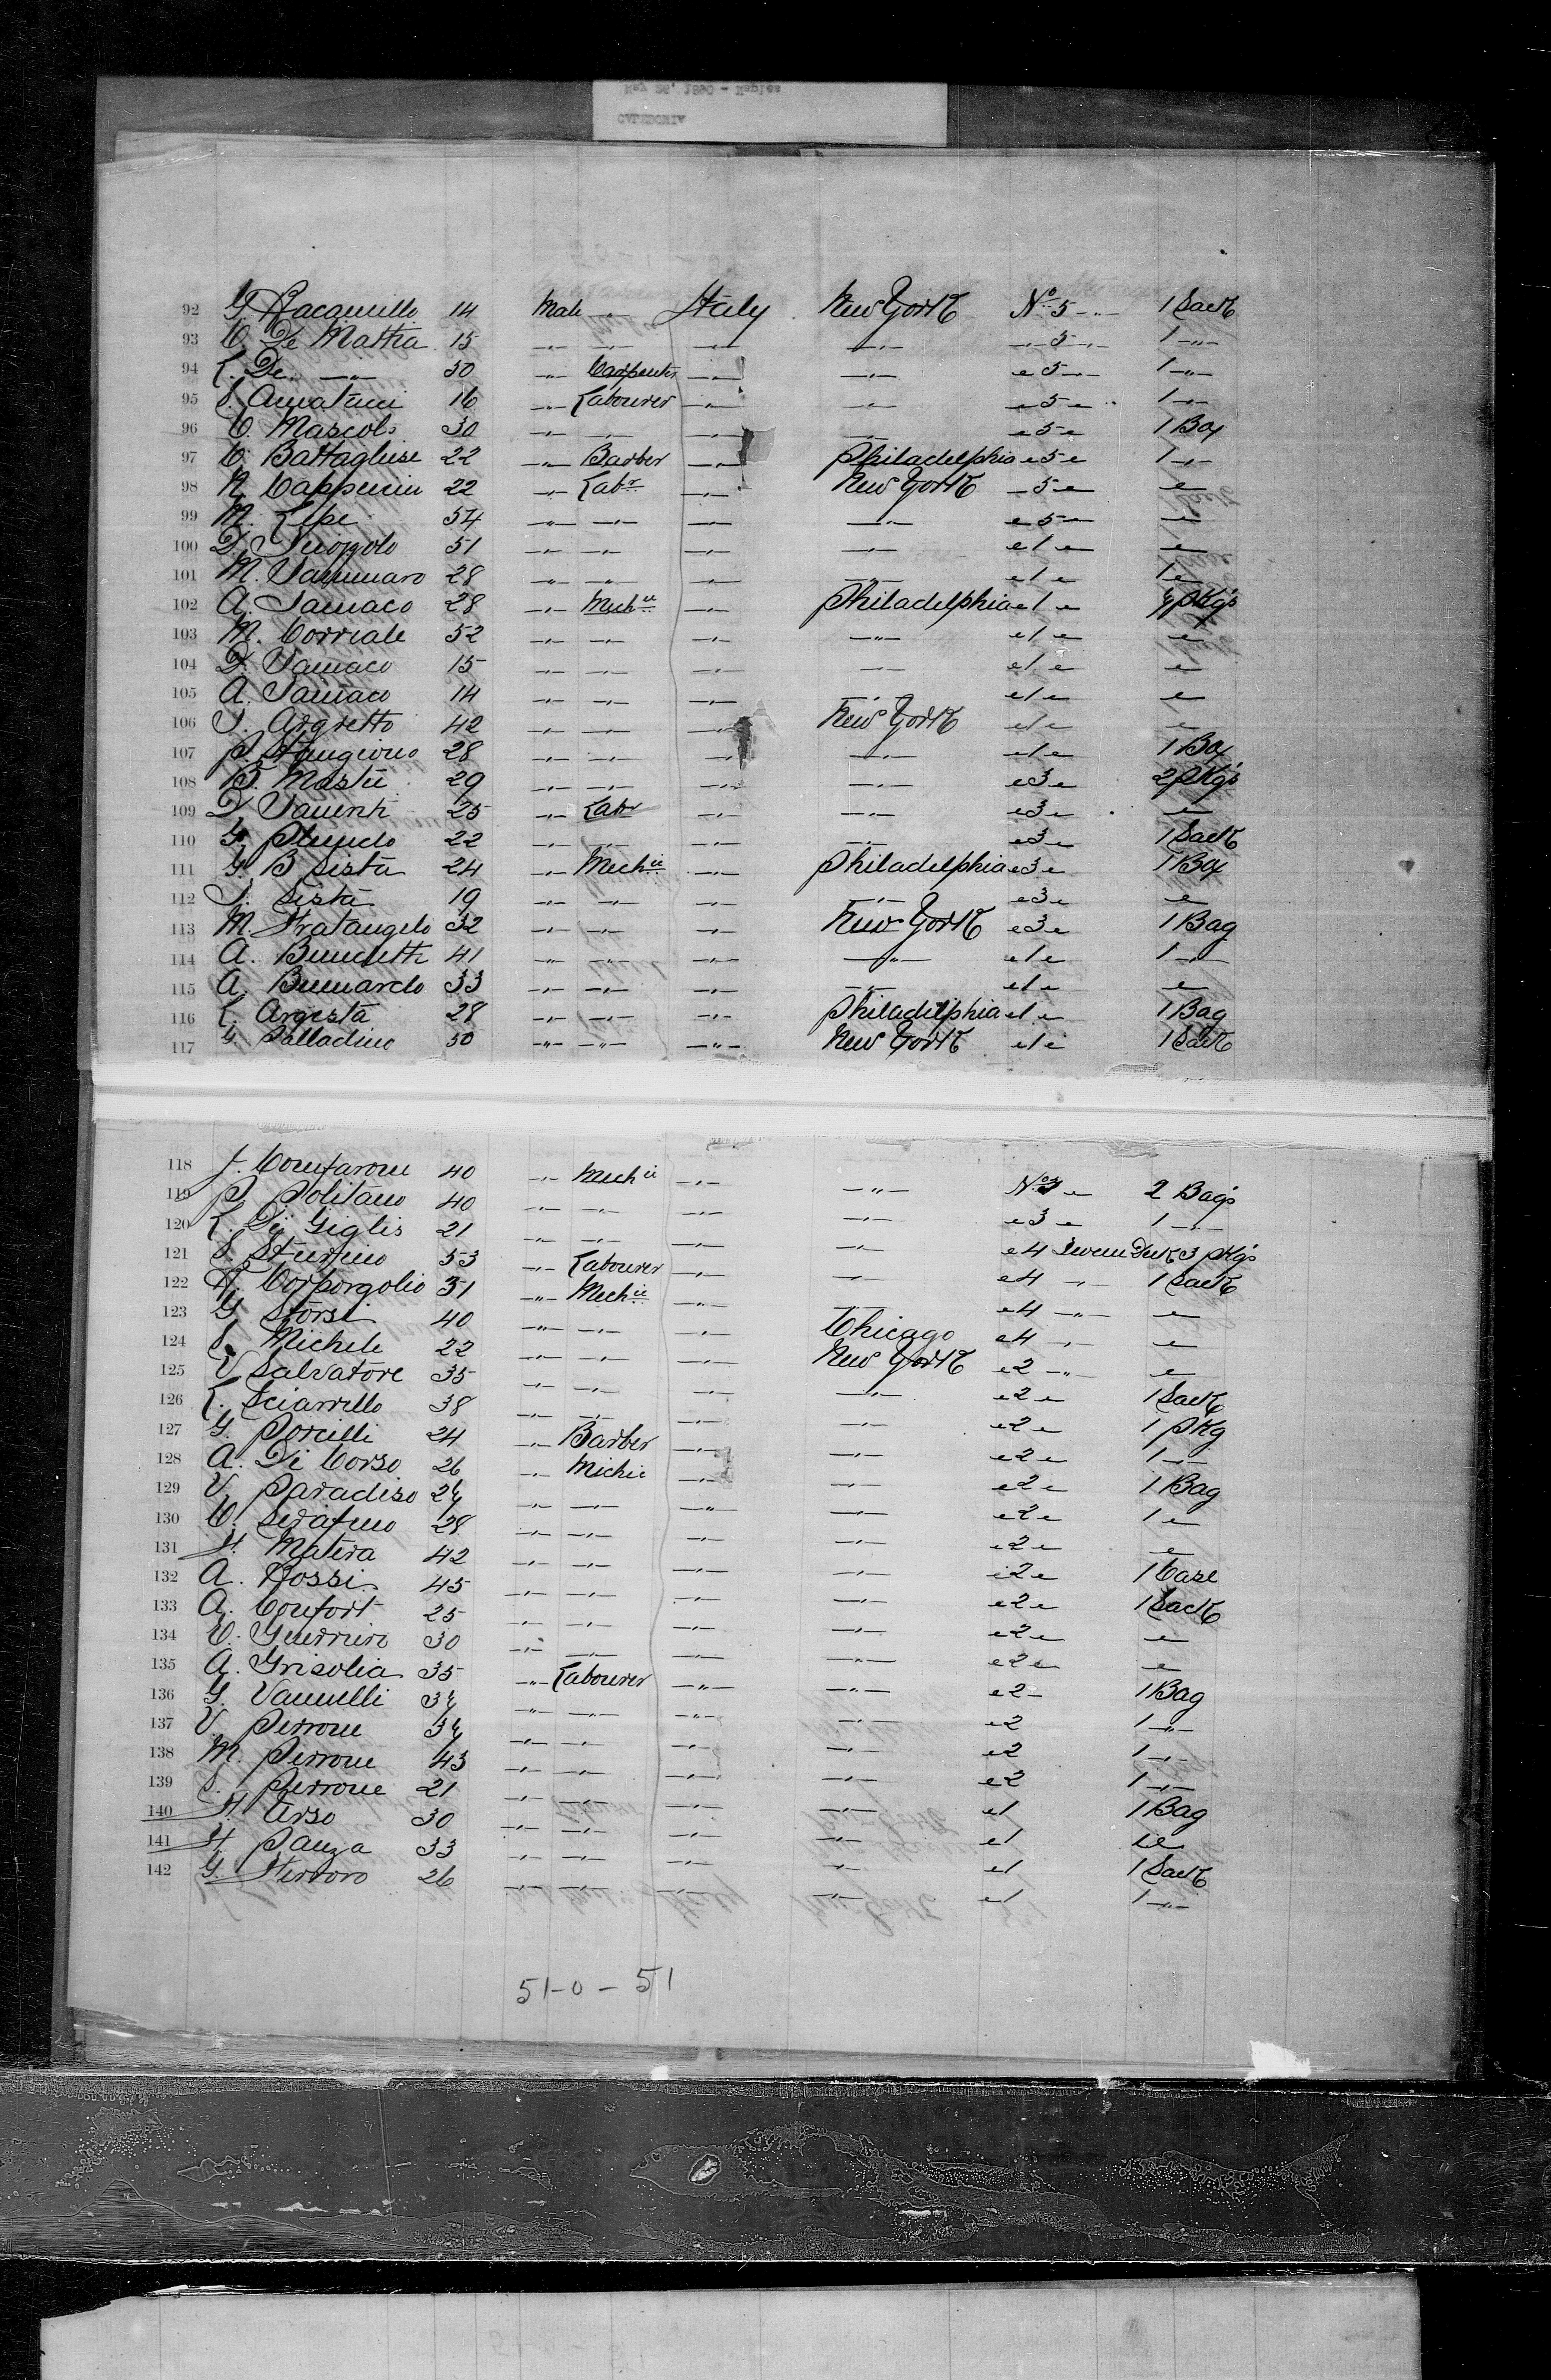 May 26, 1890 - Naples
CALEDONIA
92 14 Male -"- Italy New York No 5 -"- 1 Sack
93 C. De Mattia 15 -"- -"- -"- -"- -"- 5 -"- 1 -"-
94 L. De -"- 30 -"- Carpenter -"- -"- " 5 -"- 1 -"-
95 16 -"- Labourer -"- -"- " 5 " 1 -"-
96 C. Mascolo 30 -"- -"- -"- -"- " 5 " 1 Box
97 C. Battagliese 22 -"- Barber -"- Philadelphia " 5 " 1 -"-
98 N. 22 -"- Labr -"- New York " 5 " "
99 M. Lepe 54 -"- -"- -"- -"- " 5 " "
100 D. 51 -"- -"- -"- -"- " 1 " "
101 M. 28 -"- -"- -"- -"- " 1 " 1 "
102 A. 28 -"- Mechic -"- Philadelphia " 1 " pkgs
103 M. Corriale 52 -"- -"- -"- -"- " 1 " "
104 D. 15 -"- -"- -"- -"- " 1 " "
105 A. 14 -"- -"- -"- -"- " 1 " "
106 Argretto 42 -"- -"- -"- New York " 1 " "
107 P. 28 -"- -"- -"- -"- " 1 " 1 Box
108 B. 29 -"- -"- -"- -"- " 3 " 2 pkgs
109 D. 25 -"- Labr -"- -"- " 3 " "
110 G. 22 -"- -"- -"- -"- " 3 " 1 Sack
111 G. B Sista 24 -"- Mechic -"- Philadelphia " 3 " 1 Box
112 Sista 19 -"- -"- -"- -"- " 3 " "
113 M. Fratangelo 32 -"- -"- -"- New York " 3 " 1 Bag
114 A. 41 -"- -"- -"- -"- " 1 " 1 -"-
115 A. 33 -"- -"- -"- -"- " 1 " "
116 L. Argesta 28 -"- -"- -"- Philadelphia " 1 " 1 Bag
117 G. Palladino 50 -"- -"- -"- New York " 1 " 1 Sack
118 40 -"- Mechic -"- -"- No 3 " 2 Bags
119 P. Politano 40 -"- -"- -"- -"- " 3 " 1 -"-
120 L. Di Giglis 21 -"- -"- -"- -"- " 4 3 pkgs
121 53 -"- Labourer -"- -"- " 4 -"- 1 Sack
122 Corporgolio 31 -"- Mechic -"- -"- " 4 -"- "
123 G. Storsi 40 -"- -"- -"- Chicago " 4 -"- "
124 S. Michele 22 -"- -"- -"- New York " 2 -"- "
125 V. Salvatore 35 -"- -"- -"- -"- " 2 " 1 Sack
126 L. Sciarrillo 38 -"- -"- -"- -"- " 2 " 1 pkg
127 G. Porcilli 24 -"- Barber -"- -"- " 2 " 1 -"-
128 A. Di Corso 26 -"- Mechic -"- -"- " 2 " 1 Bag
129 V. Paradiso 24 -"- -"- -"- -"- " 2 " 1 "
130 C. Serafino 28 -"- -"- -"- -"- " 2 " "
131 F. Matera 42 -"- -"- -"- -"- " 2 " 1 Case
132 A. Rossi 45 -"- -"- -"- -"- " 2 " 1 Sack
133 A. Confort 25 -"- -"- -"- -"- " 2 " "
134 C. Guerriero 30 -"- -"- -"- -"- " 2 " "
135 A. Grisolia 35 -"- Labourer -"- -"- " 2 - 1 Bag
136 G. Vannelli 34 -"- -"- -"- -"- " 2 1 -"-
137 V. Perrone 34 -"- -"- -"- -"- " 2 1 -"-
138 M. Perrone 43 -"- -"- -"- -"- " 2 1 -"-
139 S. Perrone 21 -"- -"- -"- -"- " 1 1 Bag
140 F. Urso 30 -"- -"- -"- -"- " 1 "
141 F. Panza 33 -"- -"- -"- -"- " 1 1 Sack
142 G. Ferroro 26 -"- -"- -"- -"- " 1 1 -"-
51-0-51